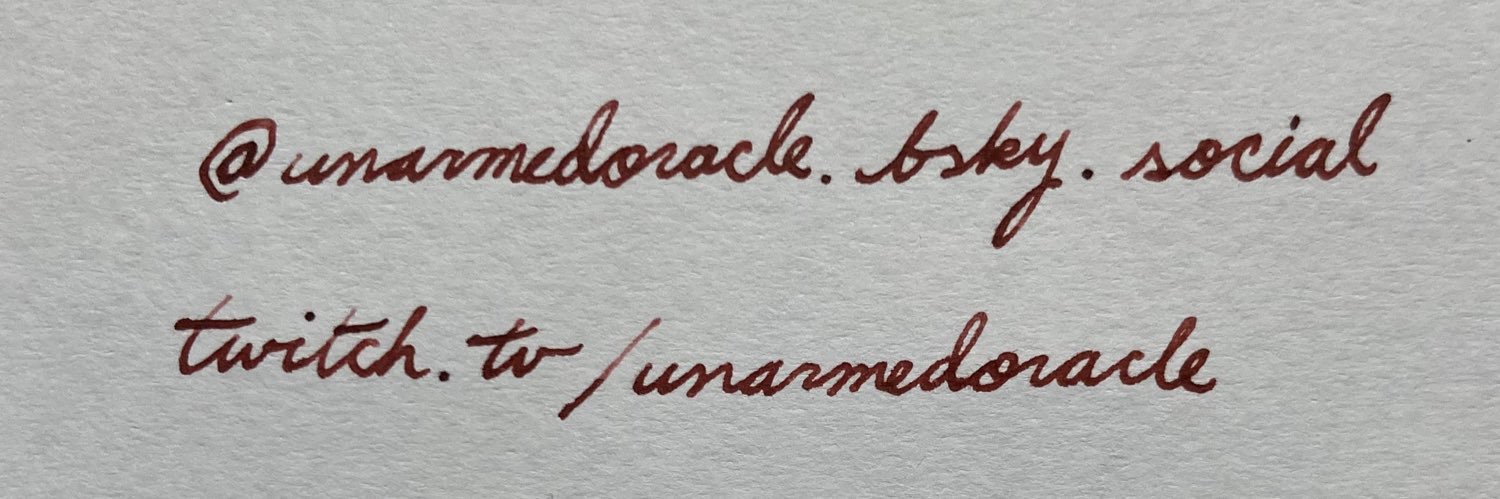 @unarmedoracle.bsky.social
twitch.tv/unarmedoracle